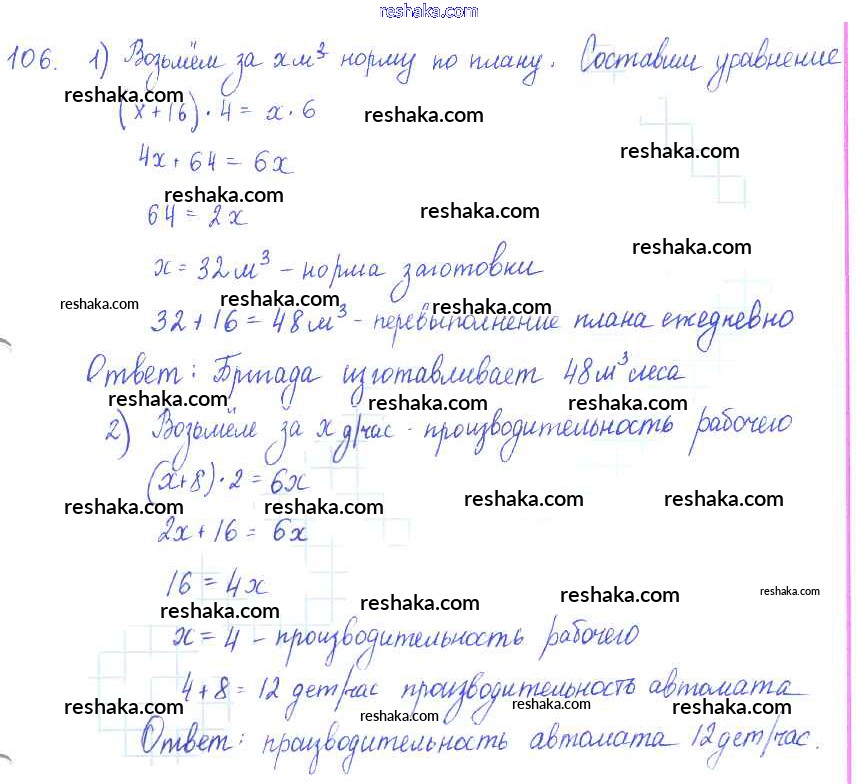 reshaka.com
106. 1) Возьмём за х м³ норму по плану. Составим уравнение
reshaka.com
(x+16)·4 = x·6
reshaka.com
4x+64 = 6x
reshaka.com
reshaka.com
64 = 2x
reshaka.com
reshaka.com
x = 32 м³ - норма заготовки
reshaka.com
reshaka.com
reshaka.com
32+16 = 48 м³ - перевыполнение плана ежедневно
Ответ: Бригада изготавливает 48 м³ леса
reshaka.com
reshaka.com
reshaka.com
2) Возьмём за х д/час - производительность рабочего
(x+8)·2 = 6x
reshaka.com
reshaka.com
reshaka.com
reshaka.com
2x+16 = 6x
16 = 4x
reshaka.com
reshaka.com
reshaka.com
reshaka.com
x = 4 - производительность рабочего
4+8 = 12 дет/час производительность автомата
reshaka.com
reshaka.com
reshaka.com
reshaka.com
Ответ: производительность автомата 12 дет/час.